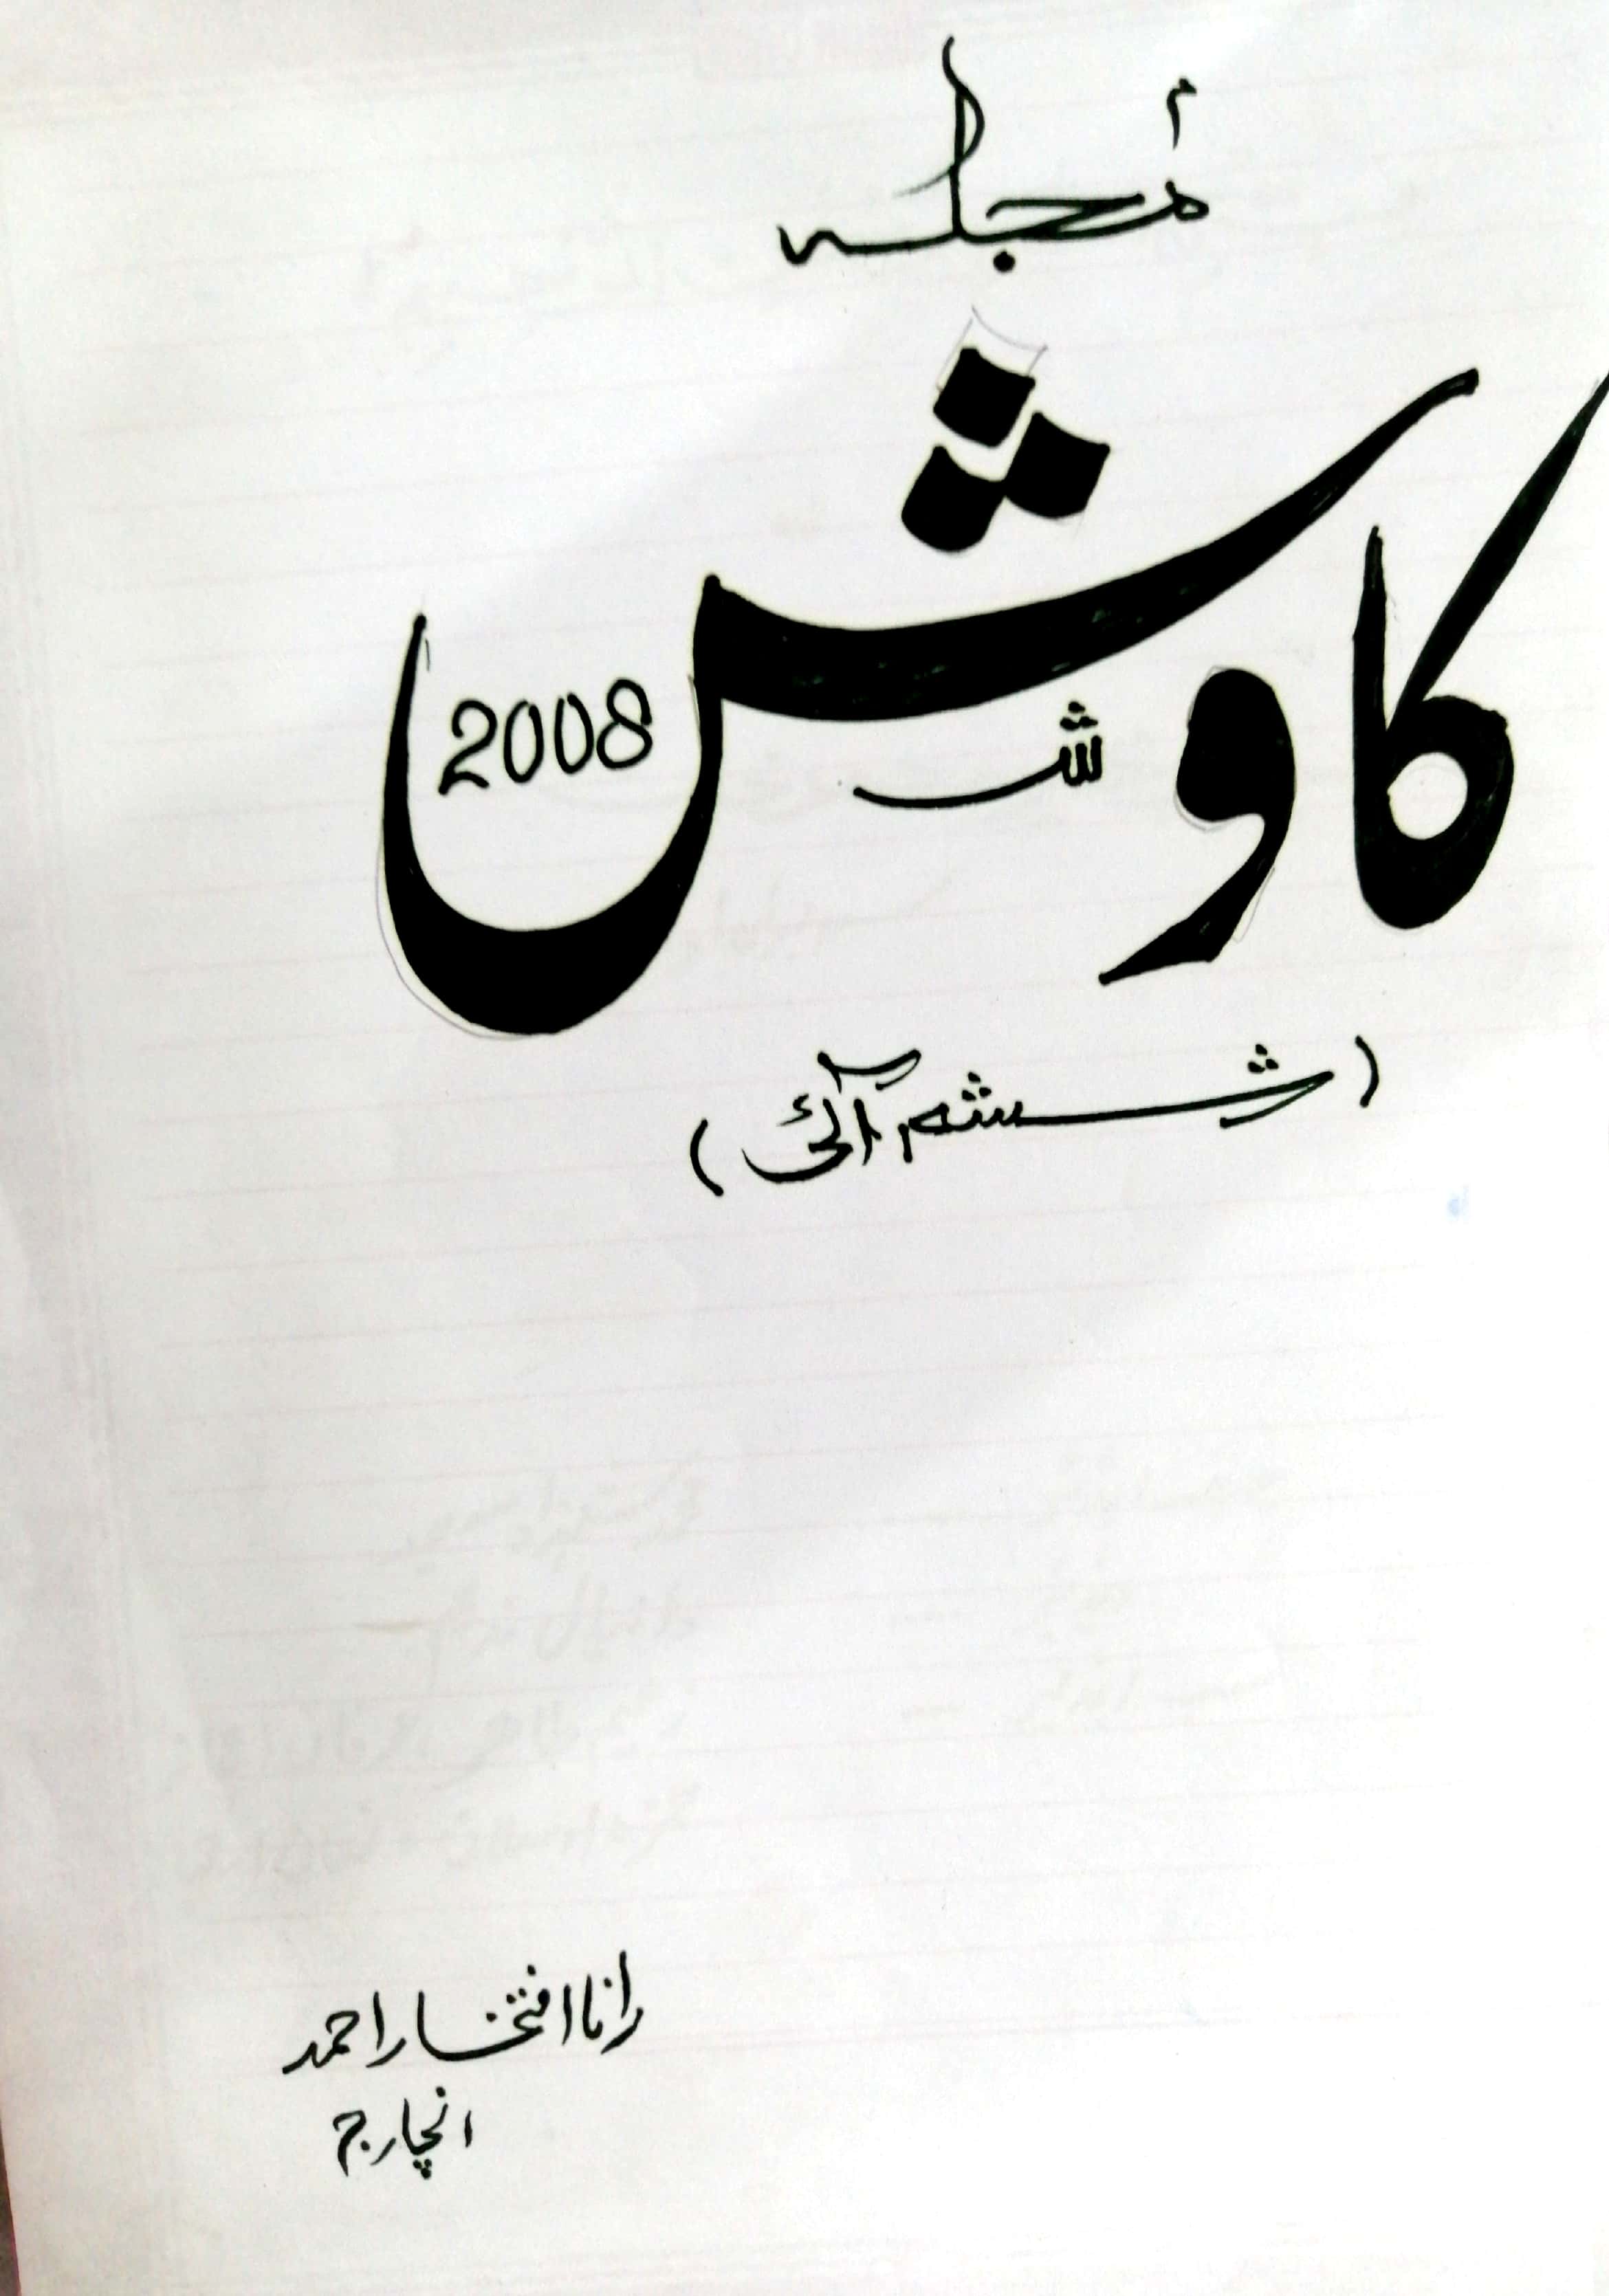 مجلہ
کاوش
2008
(ششم آئی)
رانا افتخار احمد
انچارج